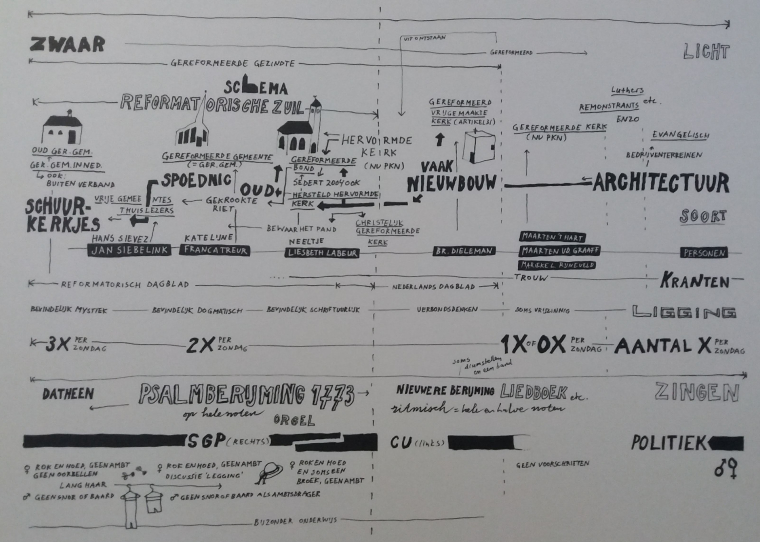 UIT ONTSTAAN
ZWAAR
GEREFORMEERD
LICHT
GEREFORMEERDE GEZINDTE
SCHEMA
REFORMATORISCHE ZUIL
Luthers
REMONSTRANTS etc.
ENZO
GEREFORMEERD
VRIJGEMAAKTE
KERK (ARTIKEL 31)
GEREFORMEERDE KERK
(NU PKN)
EVANGELISCH
HERVORMDE
KERK
(NU PKN)
OUD GER. GEM.
GER. GEM. IN NED.
OOK:
BUITEN VERBAND
GEREFORMEERDE GEMEENTE
(= GER. GEM.)
GEREFORMEERDE
BOND
SEDERT 2004 OOK
HERSTELD HERVORMDE
KERK
BEDRIJVENTERREINEN
SPOEDNIG
OUD
VAAK
NIEUWBOUW
ARCHITECTUUR
SCHUUR-
KERKJES
VRIJE GEMEENTES
THUISLEZERS
GEKROOKTE
RIET
BEWAAR HET PAND
CHRISTELIJK
GEREFORMEERDE
KERK
SOORT
HANS SIEVEZ
JAN SIEBELINK
KATELIJNE
FRANCA TREUR
NEELTJE
LIESBETH LABEUR
BR. DIELEMAN
MAARTEN 'T HART
MAARTEN VD. GRAAFF
MARIEKE L. RIJNEVELD
PERSONEN
REFORMATORISCH DAGBLAD
NEDERLANDS DAGBLAD
TROUW
KRANTEN
BEVINDELIJK MYSTIEK
BEVINDELIJK DOGMATISCH
BEVINDELIJK SCHRIFTUURLIJK
VERBONDSDENKEN
SOMS VRIJZINNIG
LIGGING
3X PER ZONDAG
2X PER ZONDAG
1X OF 0X PER ZONDAG
AANTAL X PER ZONDAG
soms
drumstellen
en een band
DATHEEN
PSALMBERIJMING 1773
op hele noten
ORGEL
NIEUWERE BERIJMING LIEDBOEK etc.
ritmisch = hele en halve noten
ZINGEN
SGP (RECHTS)
CU (links)
POLITIEK
♀ ROK EN HOED, GEEN AMBT
GEEN OORBELLEN
♀ ROK EN HOED, GEEN AMBT
DISCUSSIE 'LEGGING'
♀ ROK EN HOED
EN SOMS EEN
BROEK, GEEN AMBT
GEEN VOORSCHRIFTEN
♂♀
LANG HAAR
♂ GEEN SNOR OF BAARD
♂ GEEN SNOR OF BAARD ALS AMBTSDRAGER
BIJZONDER ONDERWIJS